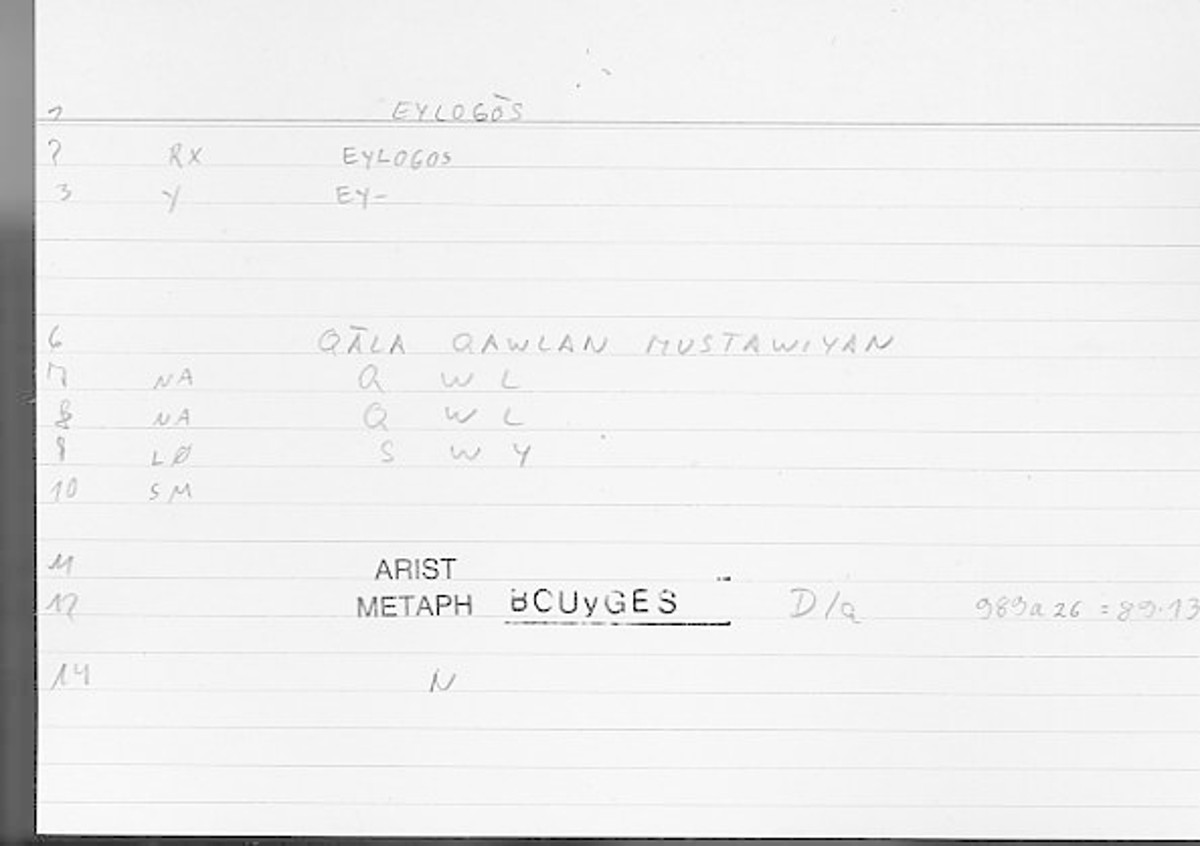 1 EYLOGŌS
2 RX EYLOGOS
3 Y EY-
6 QĀLA QAWLAN MUSTAWIYAN
7 NA Q W L
8 NA Q W L
9 LØ S W Y
10 SM
11 ARIST
12 METAPH BCUyGES D/a 989a26 = 89.13
14 N